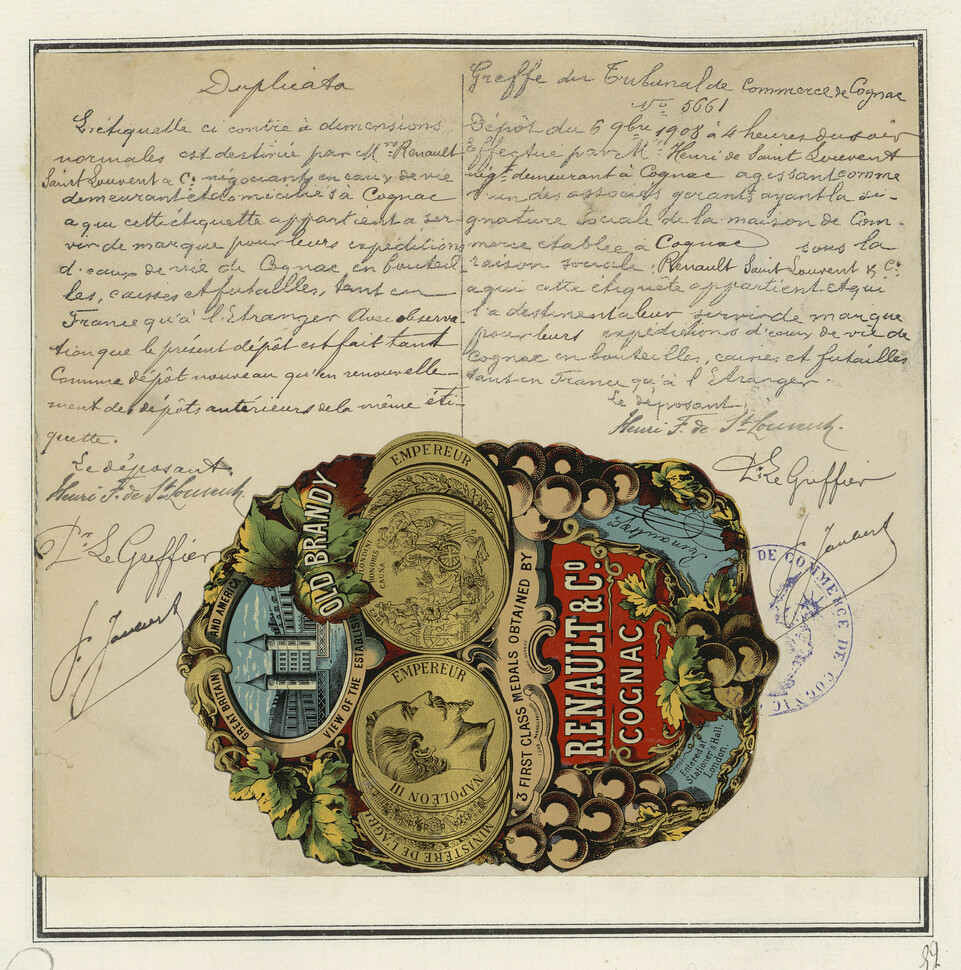 Duplicata
L'étiquette ci contre à dimensions
normales est destinée par Mrs Renault
Saint Louvent & Co négociants en eaux de vie
demeurant et domiciliés à Cognac
a qui cette étiquette appartient a ser
vir de marque pour leurs expéditions
d'eaux de vie de Cognac en bouteil
les, caisses et futailles, tant en
France qu'à l'Etranger Avec observa
tion que le présent dépôt est fait tant
comme dépôt nouveau qu'en renouvelle-
ment des dépôts antérieurs de la même éti-
quette.
Le déposant,
Henri F. de St Louvent
Le Greffier
Greffe du Tribunal de Commerce de Cognac
No 5661
Dépôt du 6 9bre 1908 à 4 heures du soir
Effectué par Mr Henri de Saint Louvent
négt demeurant à Cognac agessant comme
l'un des associés gerants ayant la si-
gnature sociale de la maison de Com-
merce etablee à Cognac sous la
raison sociale, Renault Saint Louvent & Co
a qui cette étiquête appartient et qui
l'a destinent a leur servir de marque
pour leurs expéditions d'eaux de vie de
Cognac en bouteilles, caisses et futailles
tant en France qu'à l'Etranger.
Le déposant,
Henri F. de St Louvent.
Le Greffier
OLD BRANDY
GREAT BRITAIN AND AMERICA
VIEW OF THE ESTABLIS
EMPEREUR
HONORIS
CAUSA
EMPEREUR
NAPOLEON III
MINISTÈRE DE L'AGRI
3 FIRST CLASS MEDALS OBTAINED BY
RENAULT & Co
COGNAC
Renault & Co
Entered at
Stationer's Hall,
London
DE COMMERCE DE COGNAC